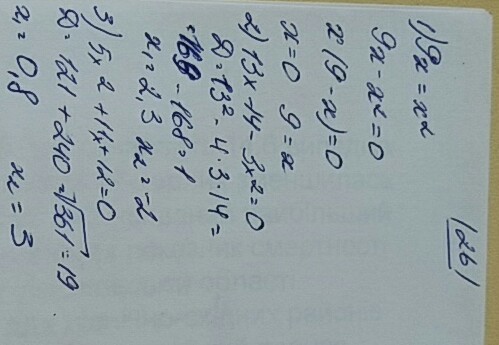 1261
1) 9x = x²
9x - x² = 0
x(9 - x) = 0
x = 0 9 = x
2) 13x + 14 - 3x² = 0
D = 13² - 4 · 3 · 14 =
= 169 - 168 = 1
x₁ = 2,3 x₂ = -2
3) 5x² + 11x + 12 = 0
D = 121 + 240 = √361 = 19
x₁ = 0,8 x₂ = 3